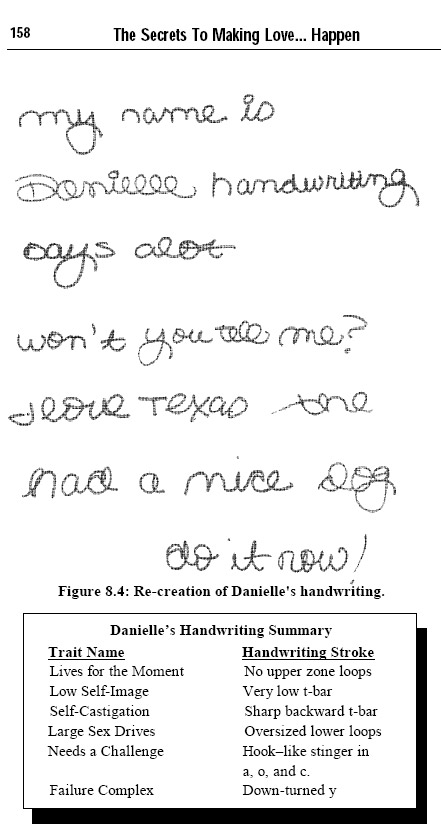 158 The Secrets To Making Love... Happen
my name is
Danielle handwriting
says alot
won't you tell me?
I love Texas she
had a nice dog
do it now!
Figure 8.4: Re-creation of Danielle's handwriting.
Danielle's Handwriting Summary
Trait Name Handwriting Stroke
Lives for the Moment No upper zone loops
Low Self-Image Very low t-bar
Self-Castigation Sharp backward t-bar
Large Sex Drives Oversized lower loops
Needs a Challenge Hook–like stinger in
a, o, and c.
Failure Complex Down-turned y